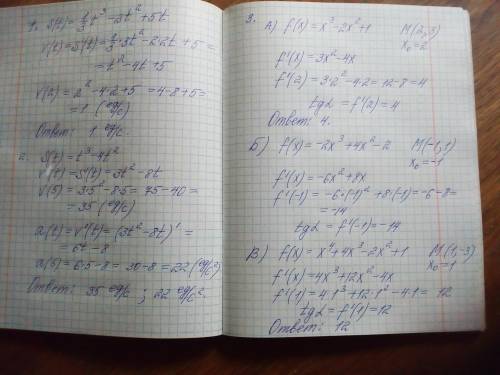 1. S(t) = 1/3 t³ - 2t² + 5t
v(t) = S'(t) = 1/3 · 3t² - 2·2t + 5 =
= t² - 4t + 5
v(2) = 2² - 4·2 + 5 = 4 - 8 + 5 =
= 1 (ед/с)
Ответ: 1 ед/с.
2. S(t) = t³ - 4t²
v(t) = S'(t) = 3t² - 8t
v(5) = 3·5² - 8·5 = 75 - 40 =
= 35 (ед/с)
a(t) = v'(t) = (3t² - 8t)' =
= 6t - 8
a(5) = 6·5 - 8 = 30 - 8 = 22 (ед/с²)
Ответ: 35 ед/с ; 22 ед/с².
3.
А) f(x) = x³ - 2x² + 1 M(2;3)
x₀ = 2
f'(x) = 3x² - 4x
f'(2) = 3·2² - 4·2 = 12 - 8 = 4
tg α = f'(2) = 4
Ответ: 4.
Б) f(x) = -2x³ + 4x² - 2 M(-1;1)
x₀ = -1
f'(x) = -6x² + 8x
f'(-1) = -6·(-1)² + 8·(-1) = -6 - 8 =
= -14
tg α = f'(-1) = -14
В) f(x) = x⁴ + 4x³ - 2x² + 1 M(1;-3)
x₀ = 1
f'(x) = 4x³ + 12x² - 4x
f'(1) = 4·1³ + 12·1² - 4·1 = 12
tg α = f'(1) = 12
Ответ: 12